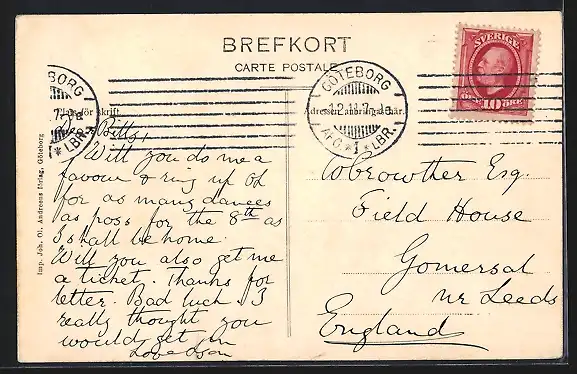 BREFKORT
CARTE POSTALE
SVERIGE
10 ÖRE
GÖTEBORG
12.11.7
LBR.
GÖTEBORG
LBR.
Plats för skrift.
Adressen anbringas här.
Imp. Joh. Ol. Andreens förlag, Göteborg
Billy,
Will you do me a
favour & ring up
for as many dances
as poss for the 8th as
I shall be home.
Will you also get me
a ticket. Thanks for
letter. Bad luck I
really thought you
would get in
Love
Crowther Esq.
Field House
Gomersal
nr Leeds
England